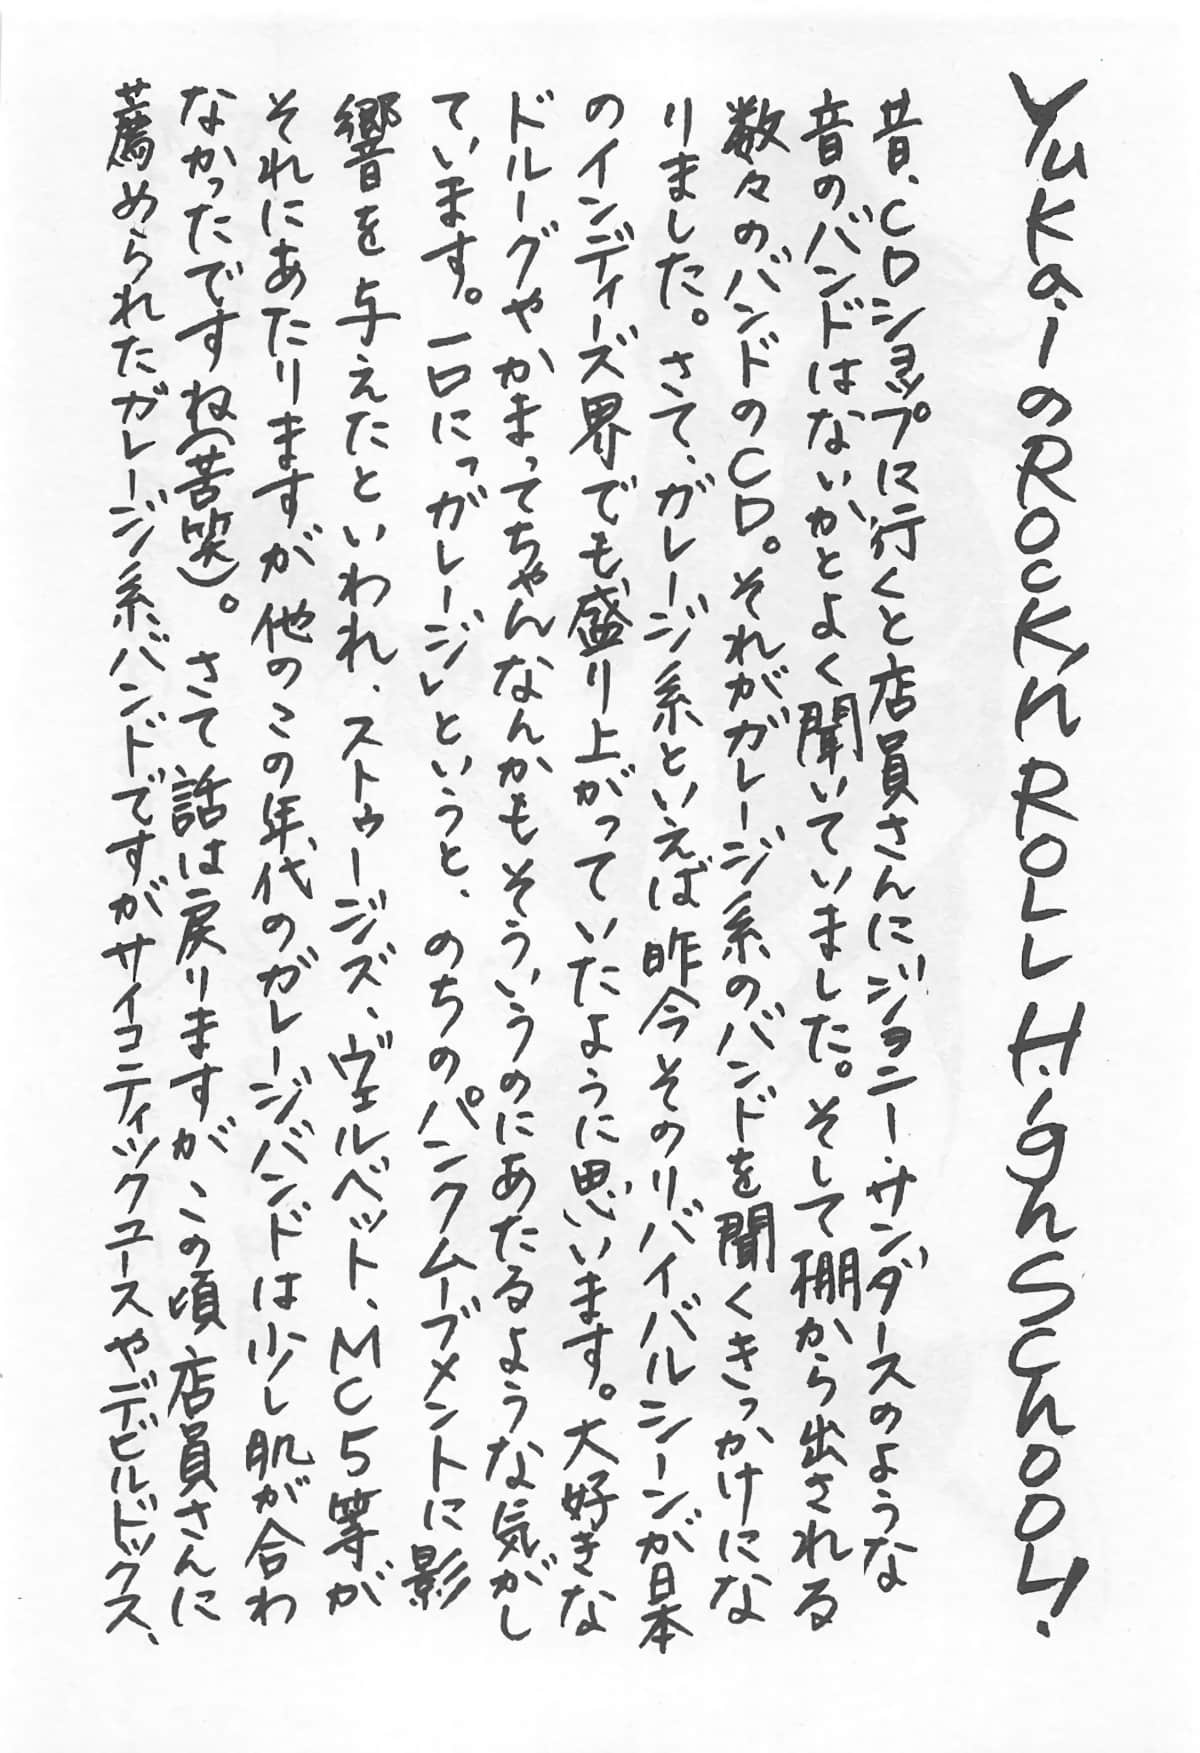 YUKaiのRocK'N ROLL HighSchool!
昔、CDショップに行くと店員さんにジョニー・サンダースのような
音のバンドはないかとよく聞いていました。そして棚から出される
数々のバンドのCD。それがガレージ系のバンドを聞くきっかけにな
りました。さて、ガレージ系といえば昨今そのリバイバルシーンが日本
のインディーズ界でも盛り上がっていたように思います。大好きな
ドルーグやかまってちゃんなんかもそういうのにあたるような気がし
ています。一口に「ガレージ」というと、のちのパンクムーブメントに影
響を与えたといわれ、ストゥージズ、ヴェルベット、MC5等が
それにあたりますが他のこの年代のガレージバンドは少し肌が合わ
なかったですね(苦笑)。さて話は戻りますが、この頃店員さんに
薦められたガレージ系バンドですがサイコティックユースやデビルドックス、